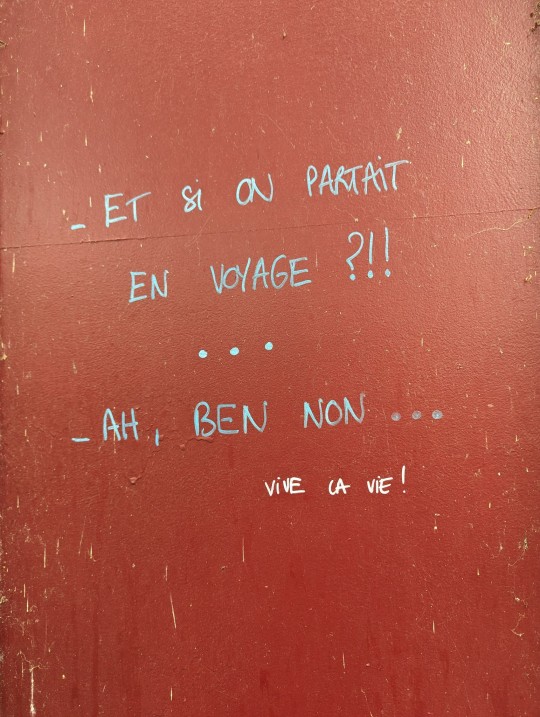 - ET Si ON PARTAiT
EN VOYAGE ?!!
...
- AH, BEN NON ...
ViVE LA ViE !